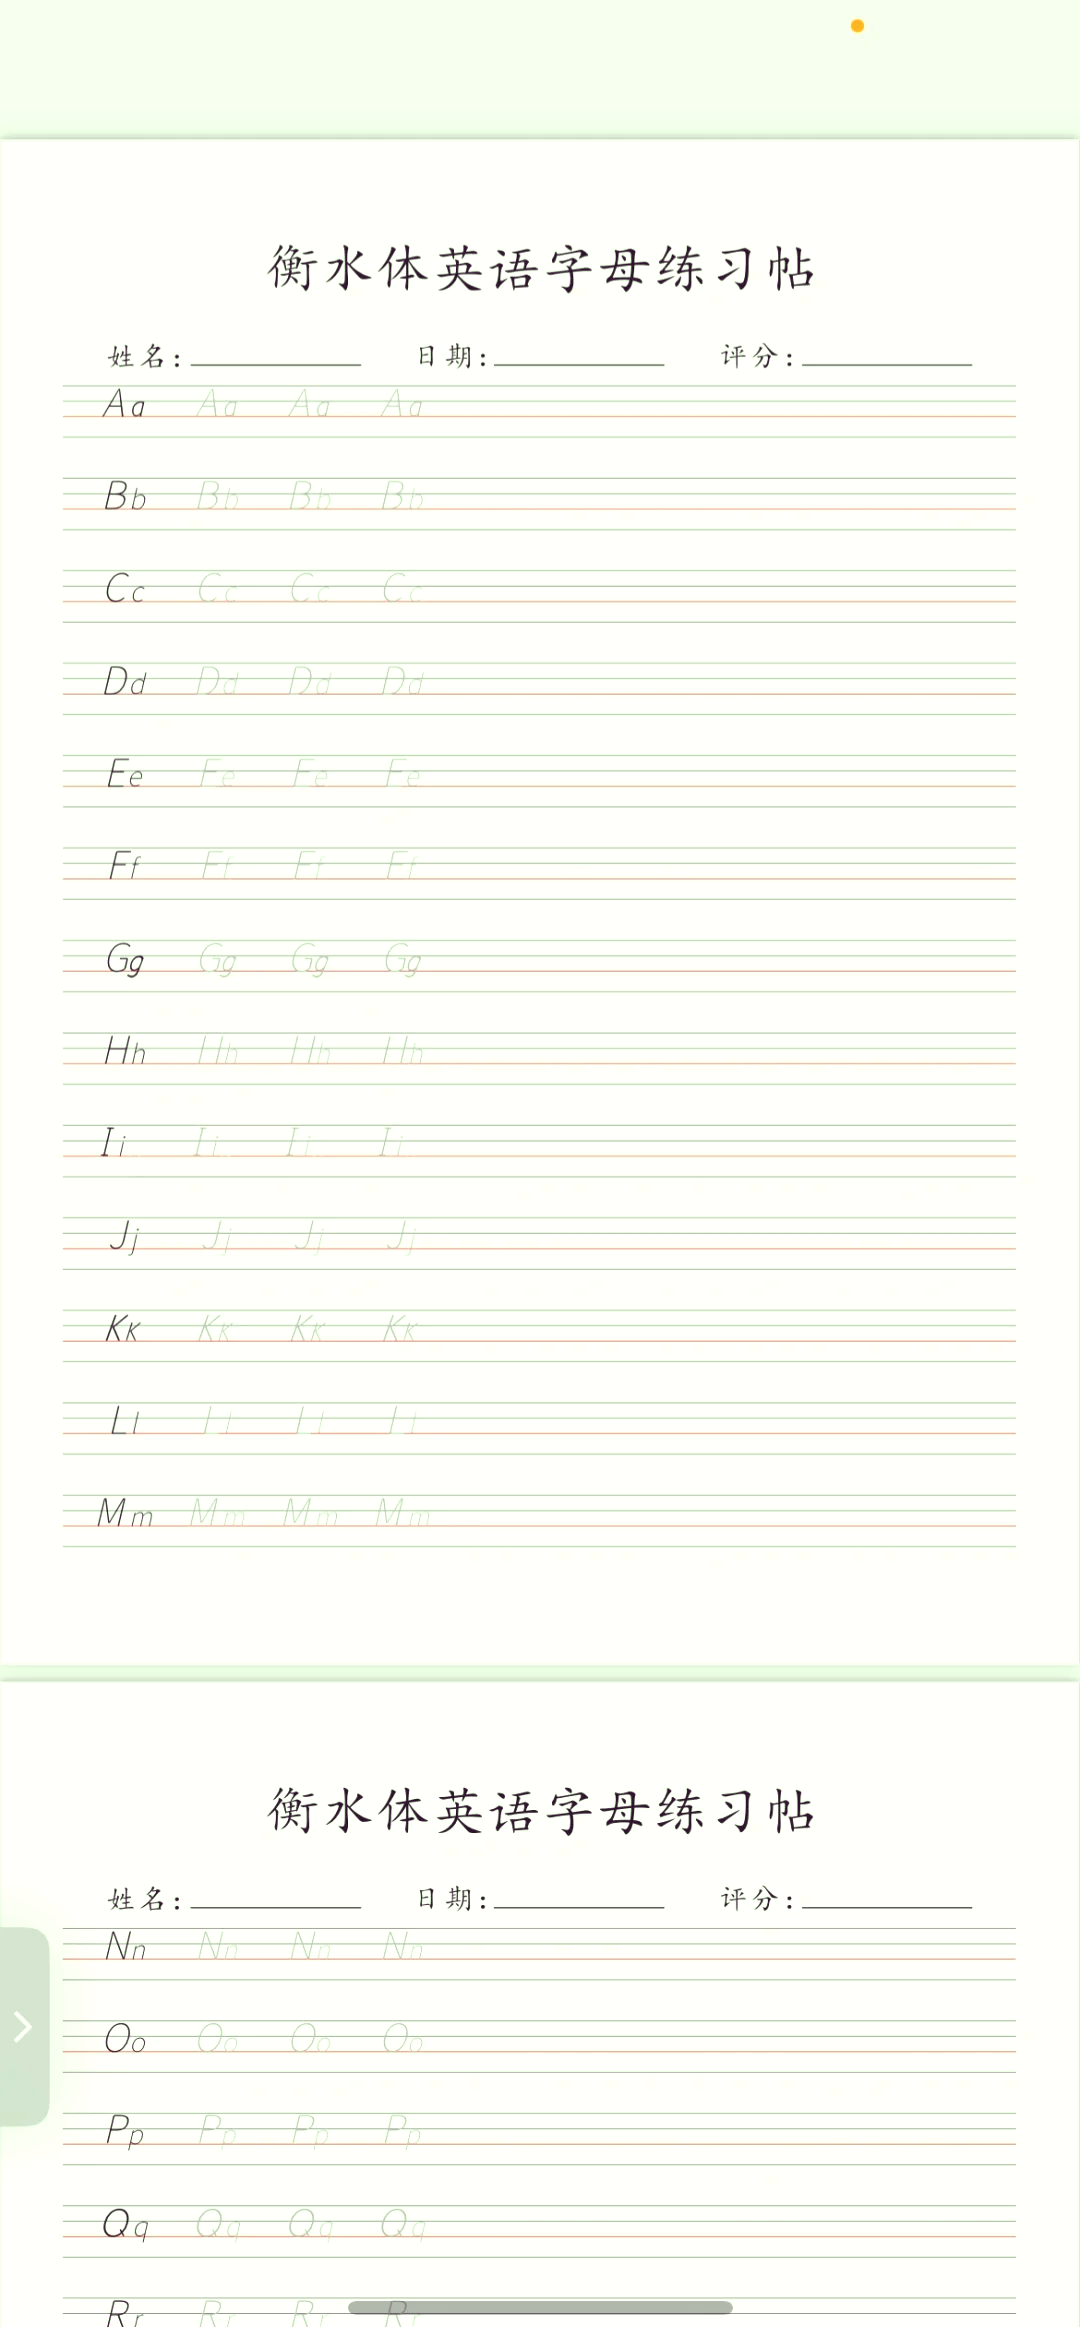 衡水体英语字母练习帖
姓名: 日期: 评分:
Aa Aa Aa Aa
Bb Bb Bb Bb
Cc Cc Cc Cc
Dd Dd Dd Dd
Ee Ee Ee Ee
Ff Ff Ff Ff
Gg Gg Gg Gg
Hh Hh Hh Hh
Ii Ii Ii Ii
Jj Jj Jj Jj
Kk Kk Kk Kk
Ll Ll Ll Ll
Mm Mm Mm Mm
衡水体英语字母练习帖
姓名: 日期: 评分:
Nn Nn Nn Nn
Oo Oo Oo Oo
Pp Pp Pp Pp
Qq Qq Qq Qq
Rr Rr Rr Rr